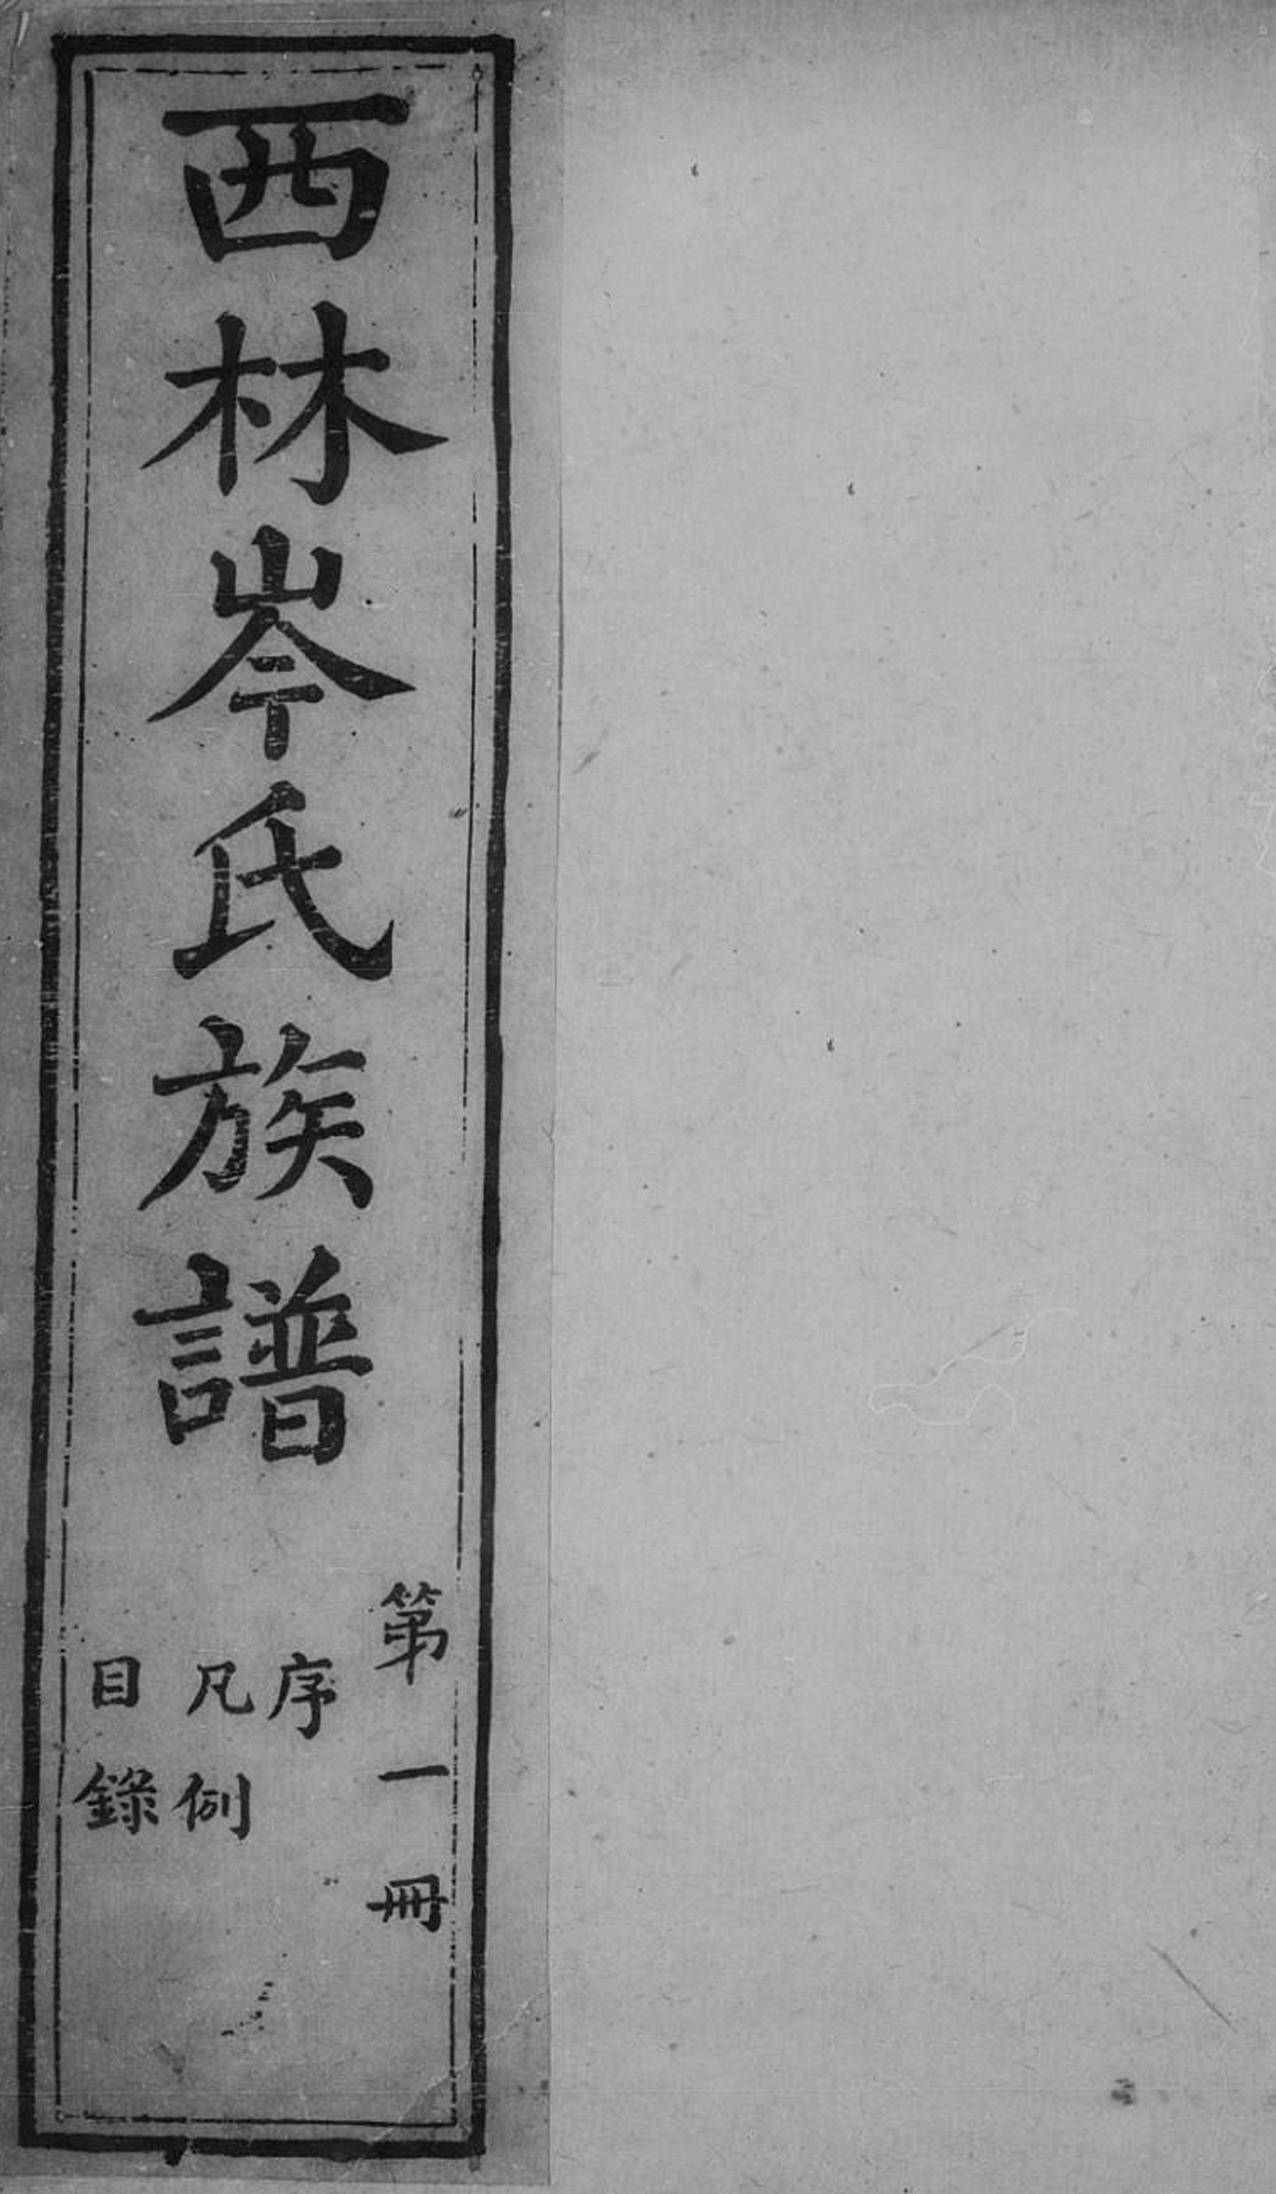 西林岑氏族譜
第一冊
序
凡例
目錄